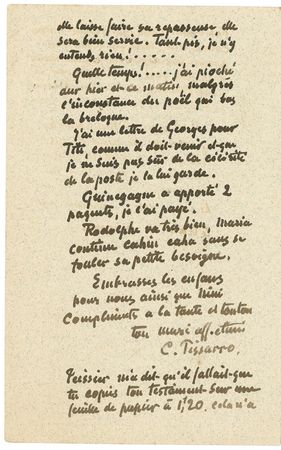 elle laisse faire sa repasseuse elle
sera bien servie. Tant pis, je n'y
entends rien! ......
Quelle temps! ..... j'ai pioché
dur hier et ce matin malgrés
l'inconstance du poël qui bas
la breloque.
J'ai une lettre de Georges pour
Titi, comme il doit venir et que
je ne suis pas sûr de la célérité
de la poste je la lui garde.
Guinegagne a apporté 2
paquets, je l'ai payé.
Rodolphe va très bien, Maria
continue cahin caha sans se
fouler sa petite besoigne.
Embrasses les enfans
pour nous ainsi que Mini
Compliments a la tante et tonton
ton mari aff.
C. Pissarro.
Teissier m'a dit qu'il fallait que
tu copies ton testament sur une
feuille de papier à 1,20. cela n'a